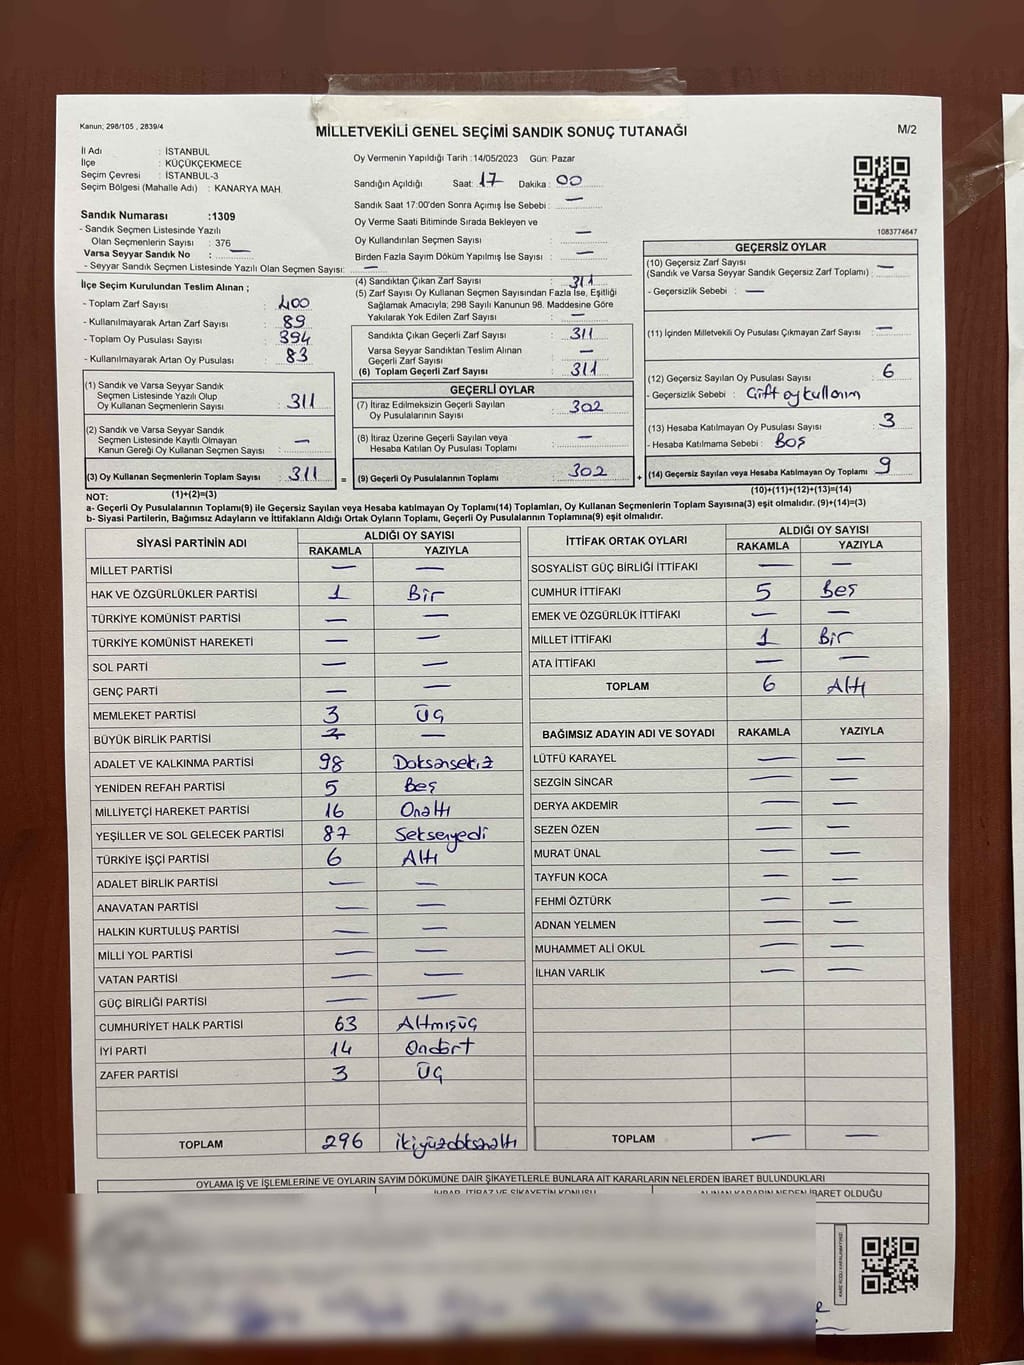 Kanun; 298/105 , 2839/4
MİLLETVEKİLİ GENEL SEÇİMİ SANDIK SONUÇ TUTANAĞI
M/2
İl Adı : İSTANBUL
İlçe : KÜÇÜKÇEKMECE
Seçim Çevresi : İSTANBUL-3
Seçim Bölgesi (Mahalle Adı) : KANARYA MAH.
Sandık Numarası :1309
- Sandık Seçmen Listesinde Yazılı
Olan Seçmenlerin Sayısı : 376
Varsa Seyyar Sandık No : —
- Seyyar Sandık Seçmen Listesinde Yazılı Olan Seçmen Sayısı: —
Oy Vermenin Yapıldığı Tarih :14/05/2023 Gün: Pazar
Sandığın Açıldığı Saat: 17 Dakika : 00
Sandık Saat 17:00'den Sonra Açımış İse Sebebi : —
Oy Verme Saati Bitiminde Sırada Bekleyen ve
Oy Kullandırılan Seçmen Sayısı : —
Birden Fazla Sayım Döküm Yapılmış İse Sayısı : —
1083774647
İlçe Seçim Kurulundan Teslim Alınan ;
- Toplam Zarf Sayısı : 400
- Kullanılmayarak Artan Zarf Sayısı : 89
- Toplam Oy Pusulası Sayısı : 394
- Kullanılmayarak Artan Oy Pusulası : 83
(1) Sandık ve Varsa Seyyar Sandık
Seçmen Listesinde Yazılı Olup
Oy Kullanan Seçmenlerin Sayısı : 311
(2) Sandık ve Varsa Seyyar Sandık
Seçmen Listesinde Kayıtlı Olmayan
Kanun Gereği Oy Kullanan Seçmen Sayısı : —
(3) Oy Kullanan Seçmenlerin Toplam Sayısı : 311 =
(1)+(2)=(3)
(4) Sandıktan Çıkan Zarf Sayısı : 311
(5) Zarf Sayısı Oy Kullanan Seçmen Sayısından Fazla İse, Eşitliği
Sağlamak Amacıyla; 298 Sayılı Kanunun 98. Maddesine Göre
Yakılarak Yok Edilen Zarf Sayısı : —
Sandıkta Çıkan Geçerli Zarf Sayısı : 311
Varsa Seyyar Sandıktan Teslim Alınan
Geçerli Zarf Sayısı : —
(6) Toplam Geçerli Zarf Sayısı : 311
GEÇERLİ OYLAR
(7) İtiraz Edilmeksizin Geçerli Sayılan
Oy Pusulalarının Sayısı : 302
(8) İtiraz Üzerine Geçerli Sayılan veya
Hesaba Katılan Oy Pusulası Toplamı : —
(9) Geçerli Oy Pusulalarının Toplamı : 302 +
GEÇERSİZ OYLAR
(10) Geçersiz Zarf Sayısı
(Sandık ve Varsa Seyyar Sandık Geçersiz Zarf Toplamı) : —
- Geçersizlik Sebebi : —
(11) İçinden Milletvekili Oy Pusulası Çıkmayan Zarf Sayısı : —
(12) Geçersiz Sayılan Oy Pusulası Sayısı : 6
- Geçersizlik Sebebi : Çift oy kullanım
(13) Hesaba Katılmayan Oy Pusulası Sayısı : 3
- Hesaba Katılmama Sebebi : Boş
(14) Geçersiz Sayılan veya Hesaba Katılmayan Oy Toplamı : 9
(10)+(11)+(12)+(13)=(14)
NOT:
a- Geçerli Oy Pusulalarının Toplamı(9) ile Geçersiz Sayılan veya Hesaba katılmayan Oy Toplamı(14) Toplamları, Oy Kullanan Seçmenlerin Toplam Sayısına(3) eşit olmalıdır. (9)+(14)=(3)
b- Siyasi Partilerin, Bağımsız Adayların ve İttifakların Aldığı Ortak Oyların Toplamı, Geçerli Oy Pusulalarının Toplamına(9) eşit olmalıdır.
SİYASİ PARTİNİN ADI ALDIĞI OY SAYISI
RAKAMLA YAZIYLA
MİLLET PARTİSİ — —
HAK VE ÖZGÜRLÜKLER PARTİSİ 1 Bir
TÜRKİYE KOMÜNİST PARTİSİ — —
TÜRKİYE KOMÜNİST HAREKETİ — —
SOL PARTİ — —
GENÇ PARTİ — —
MEMLEKET PARTİSİ 3 Üç
BÜYÜK BİRLİK PARTİSİ —
ADALET VE KALKINMA PARTİSİ 98 Doksansekiz
YENİDEN REFAH PARTİSİ 5 Beş
MİLLİYETÇİ HAREKET PARTİSİ 16 Onaltı
YEŞİLLER VE SOL GELECEK PARTİSİ 87 Seksenyedi
TÜRKİYE İŞÇİ PARTİSİ 6 Altı
ADALET BİRLİK PARTİSİ — —
ANAVATAN PARTİSİ — —
HALKIN KURTULUŞ PARTİSİ — —
MİLLİ YOL PARTİSİ — —
VATAN PARTİSİ — —
GÜÇ BİRLİĞİ PARTİSİ — —
CUMHURİYET HALK PARTİSİ 63 Altmışüç
İYİ PARTİ 14 Ondört
ZAFER PARTİSİ 3 Üç
TOPLAM 296 ikiyüzdoksanaltı
İTTİFAK ORTAK OYLARI ALDIĞI OY SAYISI
RAKAMLA YAZIYLA
SOSYALİST GÜÇ BİRLİĞİ İTTİFAKI — —
CUMHUR İTTİFAKI 5 Beş
EMEK VE ÖZGÜRLÜK İTTİFAKI — —
MİLLET İTTİFAKI 1 Bir
ATA İTTİFAKI — —
TOPLAM 6 Altı
BAĞIMSIZ ADAYIN ADI VE SOYADI RAKAMLA YAZIYLA
LÜTFÜ KARAYEL — —
SEZGİN SİNCAR — —
DERYA AKDEMİR — —
SEZEN ÖZEN — —
MURAT ÜNAL — —
TAYFUN KOCA — —
FEHMİ ÖZTÜRK — —
ADNAN YELMEN — —
MUHAMMET ALİ OKUL — —
İLHAN VARLIK — —
TOPLAM — —
OYLAMA İŞ VE İŞLEMLERİNE VE OYLARIN SAYIM DÖKÜMÜNE DAİR ŞİKAYETLERLE BUNLARA AİT KARARLARIN NELERDEN İBARET BULUNDUKLARI
İHBAR, İTİRAZ VE ŞİKAYETİN KONUSU ALINAN KARARIN NEDEN İBARET OLDUĞU